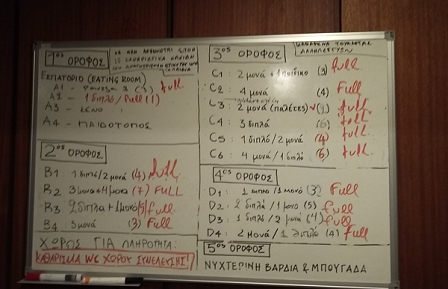 1ος ΟΡΟΦΟΣ
ΕΣΤΙΑΤΟΡΙΟ (EATING ROOM)
A1 - (4) full
A2 - 1 διπλό / full (1)
A3 - ΞΕΝΟ
A4 - ΠΑΙΔΟΤΟΠΟΣ
2ος ΟΡΟΦΟΣ
B1 1 διπλό/2 μονά (4) full
B2 3 (7) FULL
B3 full
B4 3 μονά (3) Full
ΧΩΡΟΣ ΓΙΑ ΠΛΗΡΟΤΗΤΑ:
ΚΑΘΑΡΙΣΜΑ WC ΧΩΡΟΥ ΣΥΝΕΛΕΥΣΗΣ!
3ος ΟΡΟΦΟΣ
C1: 2 μονά + 1 (3) full
C2: 4 μονά (4) Full
C3: 2 μονά (παλέτες) full
C4: 3 διπλά (6) full
C5: 1 διπλό/2 μονά (4) full
C6: 4 μονά/1 διπλό (6) full
4ος ΟΡΟΦΟΣ
D1: 1 διπλό/1 μονό (3) Full
D2: 2 διπλά/1 μονό (5) full
D3: 1 διπλό/2 μονά (4) full
D4: 2 μονά/1 διπλό (4) full
5ος ΟΡΟΦΟΣ
ΝΥΧΤΕΡΙΝΗ ΒΑΡΔΙΑ & ΜΠΟΥΓΑΔΑ